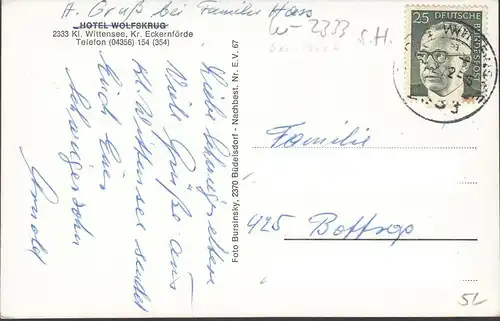 A. Gruß bei Familie Hass
HOTEL WOLFSKRUG
2333 Kl. Wittensee, Kr. Eckernförde
Telefon (04356) 154 (354)
W-2333
S.H.
25 DEUTSCHE
BUNDESPOST
Liebe Schwiegereltern
Viele Grüße aus
Kl. Wittensee sendet
Euch Euer
Schwiegersohn
Arnold
Foto Bursinsky, 2370 Büdelsdorf - Nachbest. Nr. E.V. 67
Familie
425 Bottrop